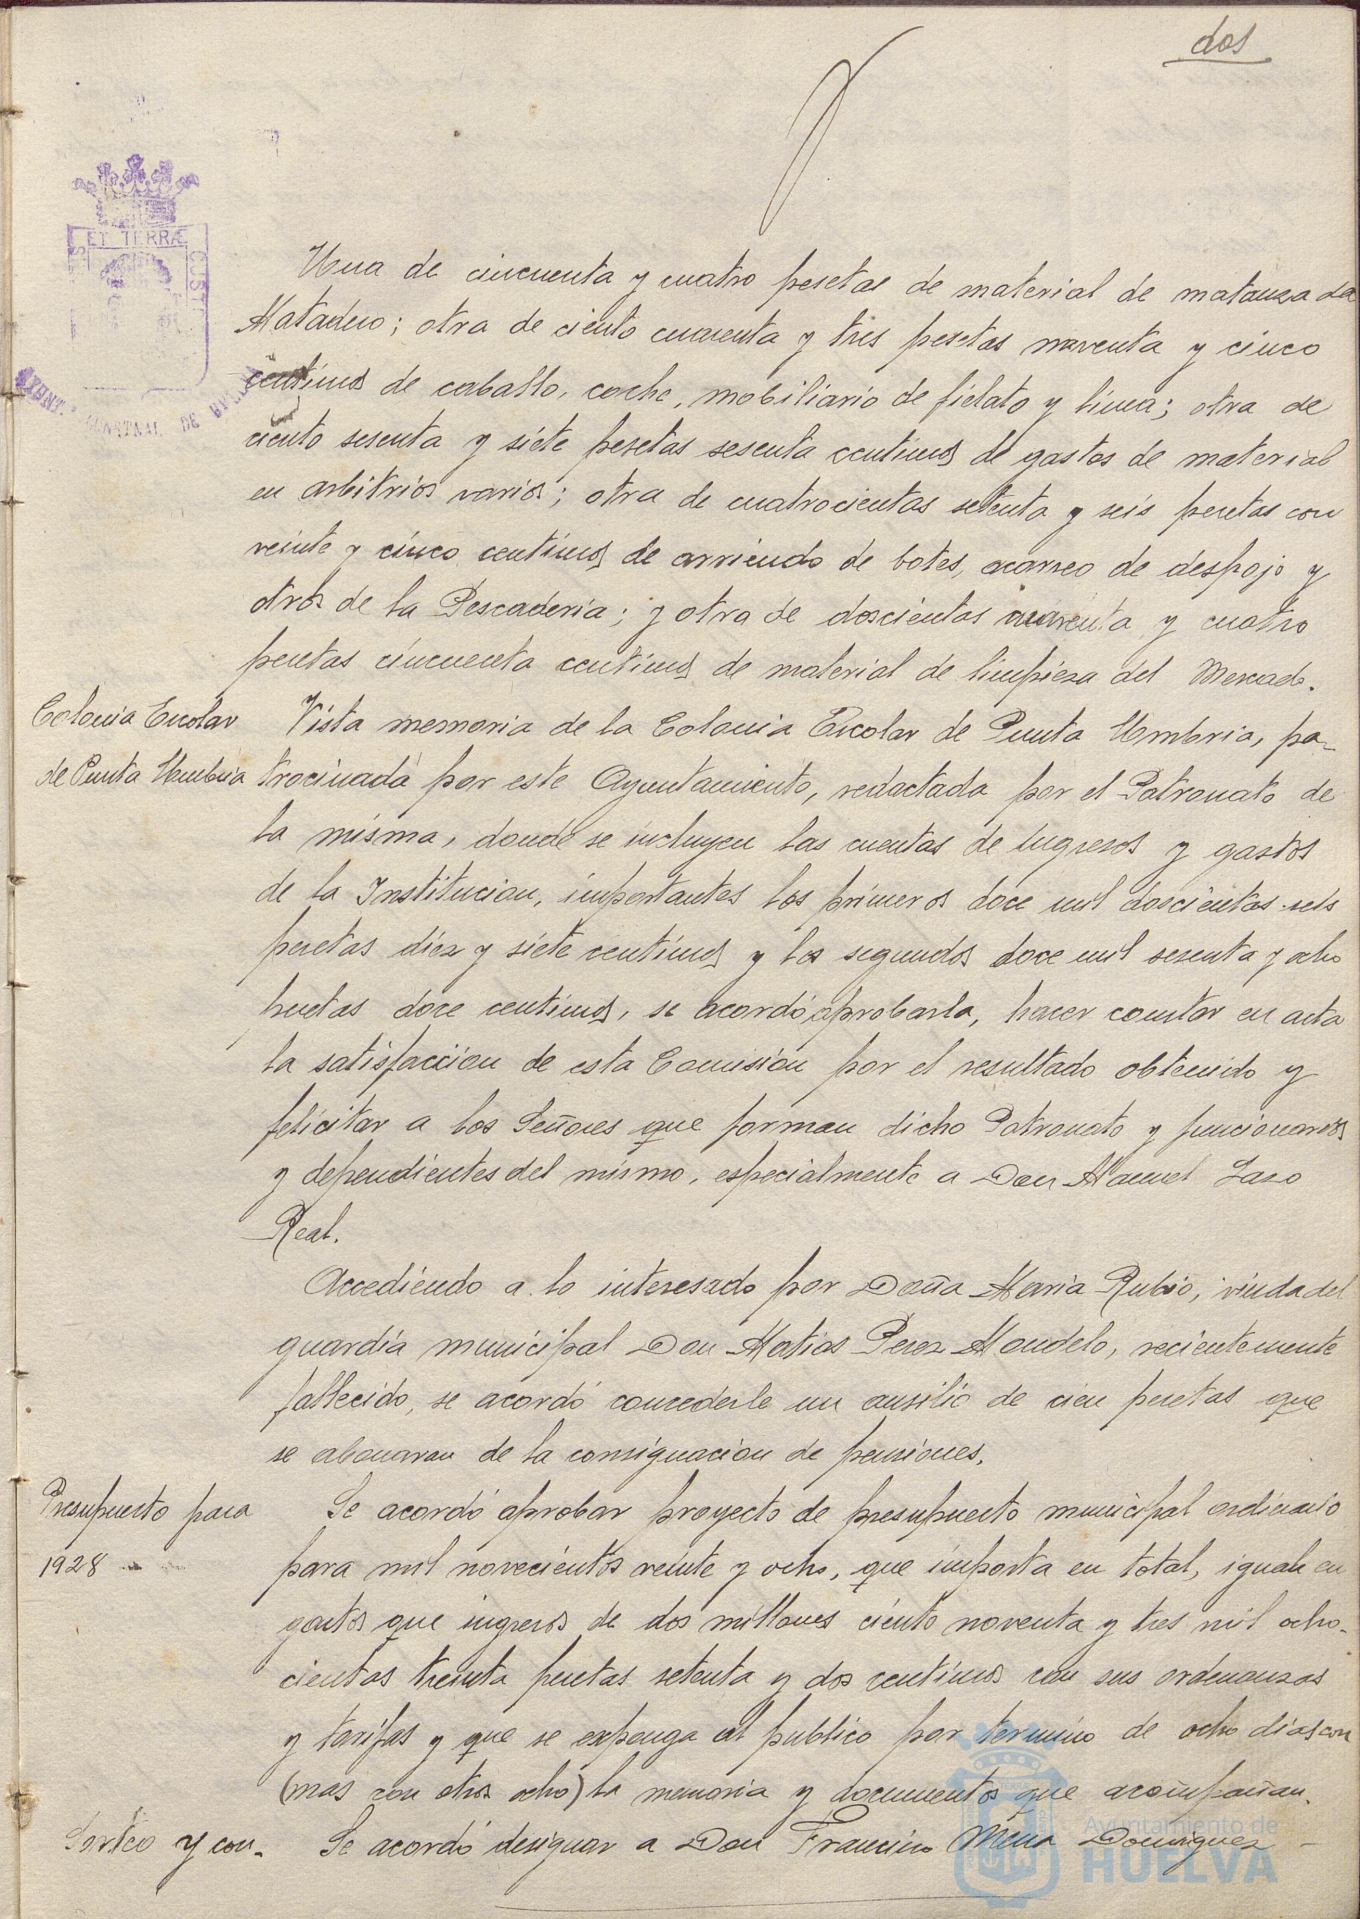 dos
ET TERRÆ
CUST
Una de cincuenta y cuatro pesetas de material de matanza del
Matadero; otra de ciento cuarenta y tres pesetas noventa y cinco
centimos de caballo, coche, mobiliario de fielato y linea; otra de
ciento sesenta y siete pesetas sesenta centimos de gastos de material
en arbitrios varios; otra de cuatrocientas setenta y seis pesetas con
veinte y cinco centimos de arriendo de botes, acarreo de despojo y
otros de la Pescaderia; y otra de doscientas cuarenta y cuatro
pesetas cincuenta centimos de material de limpieza del Mercado.
Colonia Escolar
de Punta Umbria
Vista memoria de la Colonia Escolar de Punta Umbria, pa-
trocinada por este Ayuntamiento, redactada por el Patronato de
la misma, donde se incluyen las cuentas de ingresos y gastos
de la Institucion, importantes los primeros doce mil doscientas seis
pesetas diez y siete centimos y los segundos doce mil sesenta y ocho
pesetas doce centimos, se acordó aprobarla, hacer constar en acta
la satisfaccion de esta Comisión por el resultado obtenido y
felicitar a los Señores que forman dicho Patronato y funcionarios
y dependientes del mismo, especialmente a Don Manuel Lazo
Real.
Accediendo a lo interesado por Doña Maria Rubio, viuda del
guardia municipal Don Matias Perez Mondelo, recientemente
fallecido, se acordó concederle un ausilio de cien pesetas que
se abonaran de la consignacion de pensiones.
Presupuesto para
1928
Se acordó aprobar proyecto de presupuesto municipal ordinario
para mil novecientos veinte y ocho, que importa en total, igual en
gastos que ingresos de dos millones ciento noventa y tres mil ocho-
cientas treinta pesetas setenta y dos centimos con sus ordenanzas
y tarifas y que se exponga al publico por termino de ocho dias con
(mas con otros ocho) la memoria y documentos que acompañan.
Sorteo y con-
Se acordó designar a Don Francisco Mena Dominguez
Ayuntamiento de
HUELVA